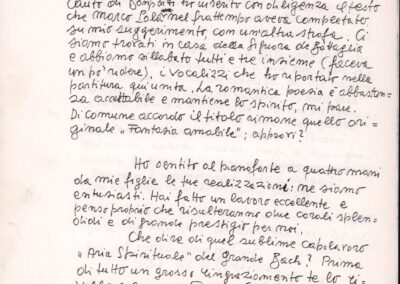 Canto di Gospoti ho inserito con diligenza il testo
che Marco Sofia nel frattempo aveva completato,
su mio suggerimento, con un'altra strofa. Ci
siamo trovati in casa della Signora de Battaglia
e abbiamo sillabato tutti e tre insieme (faceva
un po' ridere), i vocalizzi che ho riportato nella
partitura qui unita. La romantica poesia è abbastan=
za accettabile e mantiene lo spirito, mi pare.
Di comune accordo il titolo rimane quello ori=
ginale "Fantasia amabile"; approvi?
Ho sentito al pianoforte a quattro mani
da mie figlie le tue realizzazioni: ne siamo
entusiasti. Hai fatto un lavoro eccellente e
penso proprio che risulteranno due corali splen=
didi e di grande prestigio per noi.
Che dire di quel sublime capolavoro
"Aria Spirituale" del grande Bach? Prima
di tutto un grosso ringraziamento te lo ri=